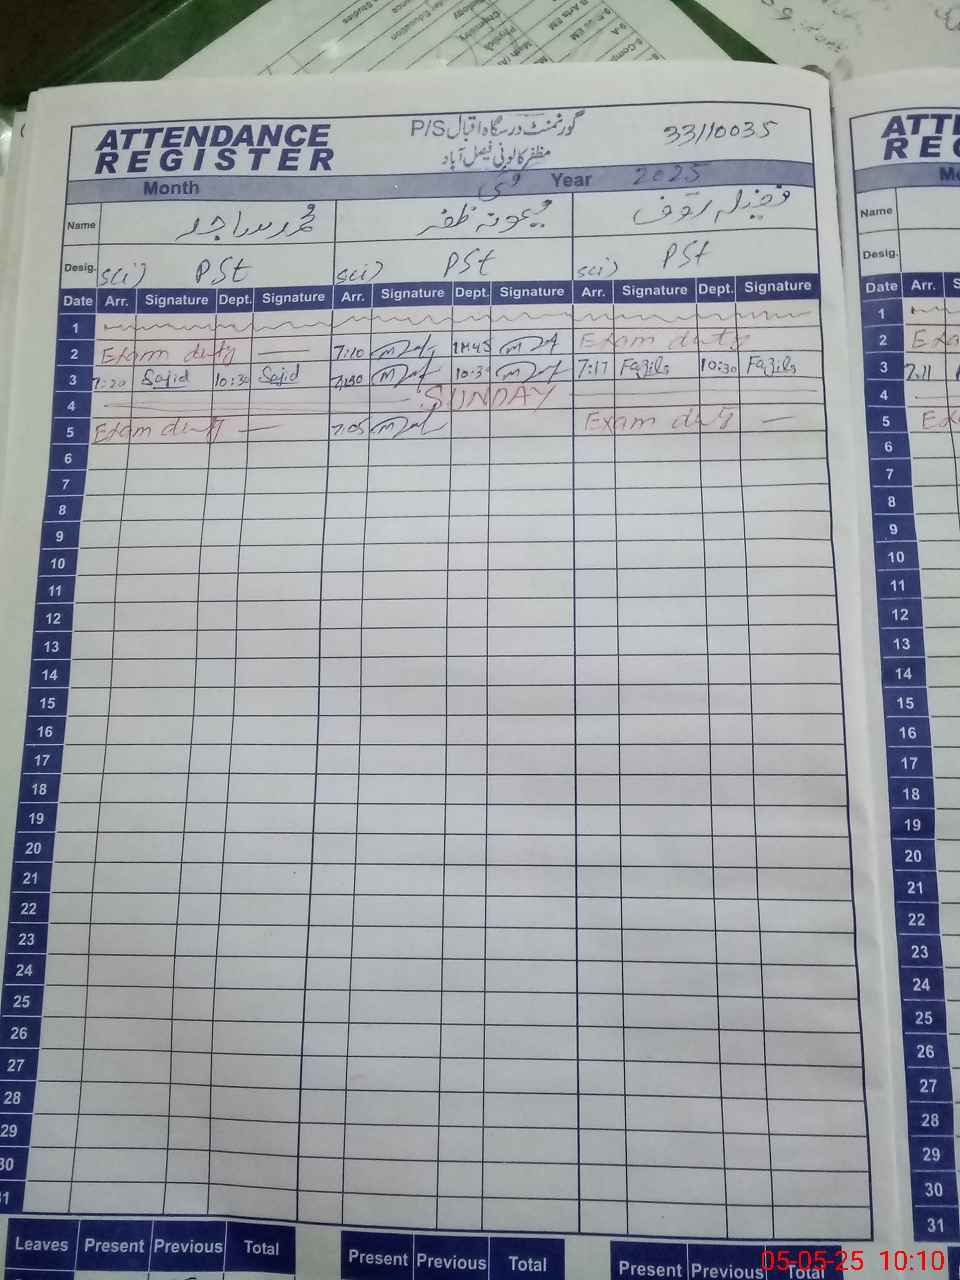 ATTENDANCE REGISTER
گورنمنٹ درسگاہ اقبال P/S
مظفر کالونی فیصل آباد
33110035
Month مئی Year 2025
Name محمد ساجد میمونہ ظفر فضیلہ رؤف
Desig. sci) PSt sci) PSt sci) PSt
Date Arr. Signature Dept. Signature Arr. Signature Dept. Signature Arr. Signature Dept. Signature
1
2 Exam duty 7:10 11:45 Exam duty
3 7:20 Sajid 10:30 Sajid 10:30 7:17 Fazila 10:30 Fazila
4 SUNDAY
5 Exam duty 7:05 Exam duty
6
7
8
9
10
11
12
13
14
15
16
17
18
19
20
21
22
23
24
25
26
27
28
29
30
31
Leaves Present Previous Total Present Previous Total Present Previous Total
Name
Desig.
Date Arr.
1
2
3 7:11
4
5
6
7
8
9
10
11
12
13
14
15
16
17
18
19
20
21
22
23
24
25
26
27
28
29
30
31
05-05-25 10:10